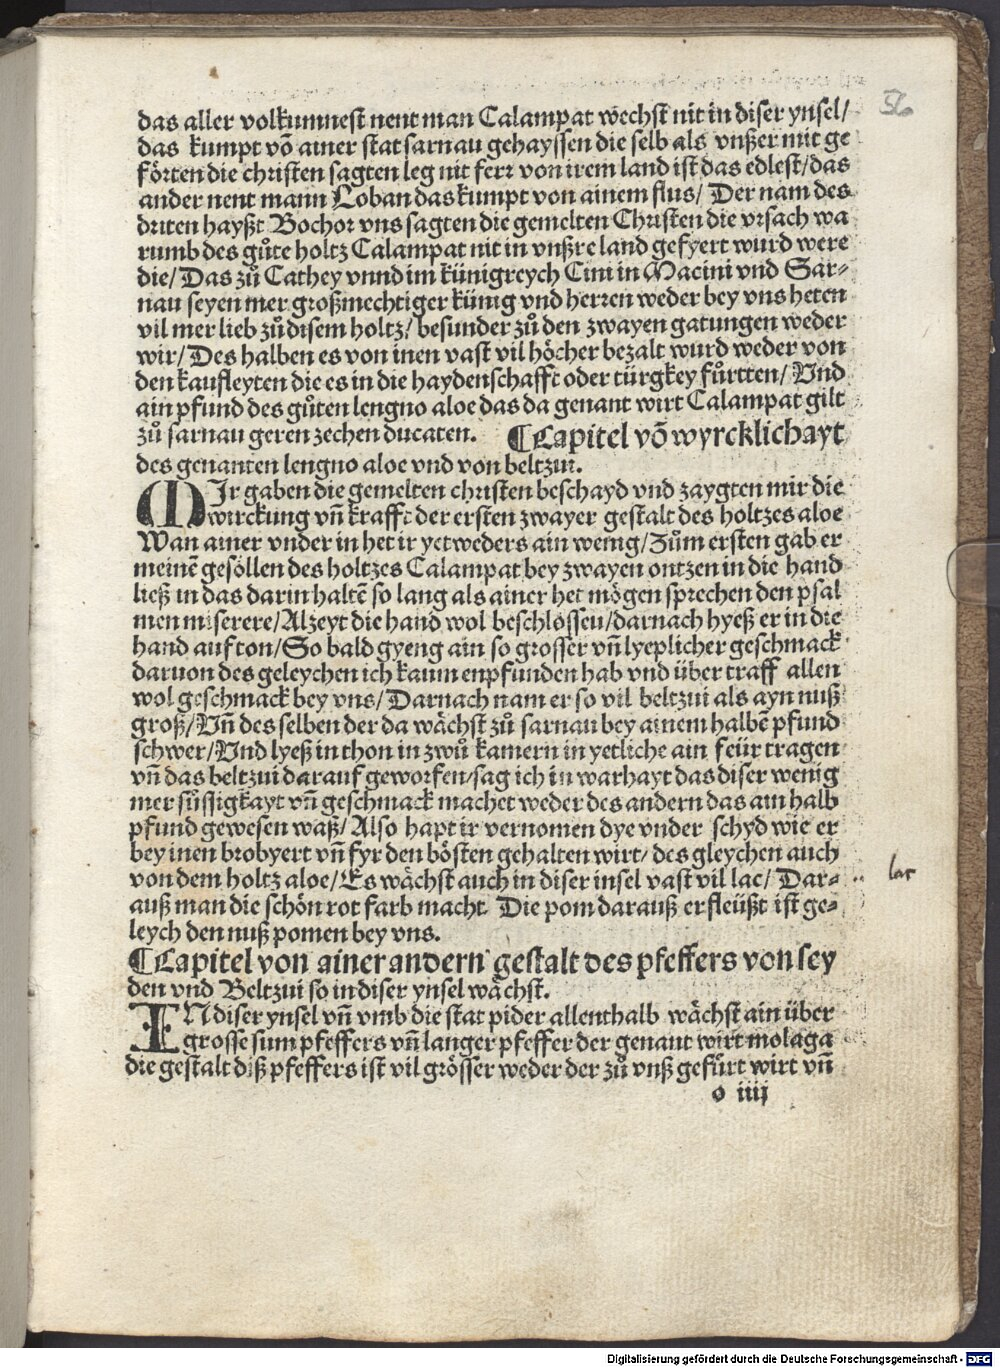 56
das aller volkumnest nent man Calampat wechst nit in diser ynsel/
das kumpt võ ainer stat sarnau gehayssen die selb als vnßer mit ge
förten die christen sagten leg nit ferr von irem land ist das edlest/das
ander nent mann Loban das kumpt von ainem flus/ Der nam des
driten hayßt Bochor vns sagten die gemelten Christen die vrsach wa
rumb des gůte holtz Calampat nit in vnßre land gefyert wurd were
die/ Das zů Cathey vnnd im künigreych Cini in Macini vnd Sar⸗
nau seyen mer großmechtiger künig vnd herren weder bey vns heten
vil mer lieb zů disem holtz/ besunder zů den zwayen gatungen weder
wir/ Des halben es von inen vast vil höcher bezalt wurd weder von
den kaufleyten die es in die haydenschafft oder türgkey fůrtten/ Vnd
ain pfund des gůten lengno aloe das da genant wirt Calampat gilt
zů sarnau geren zechen ducaten. ¶Capitel võ wyrcklichayt
des genanten lengno aloe vnd von beltzui.
MJr gaben die gemelten christen beschayd vnd zaygten mir die
wirckung vñ krafft der ersten zwayer gestalt des holtzes aloe
Wan ainer vnder in het ir yetweders ain wenig/Zům ersten gab er
meinẽ gesöllen des holtzes Calampat bey zwayen ontzen in die hand
ließ in das darin haltẽ so lang als ainer het mögen sprechen den psal
men miserere/Alzeyt die hand wol beschlossen/darnach hyeß er in die
hand auf ton/So bald gyeng ain so grosser vñ lyeplicher geschmack
daruon des geleychen ich kaum enpfunden hab vnd über traff allen
wol geschmack bey vns/ Darnach nam er so vil beltzui als ayn nuß
groß/Vñ des selben der da wächst zů sarnau bey ainem halbẽ pfund
schwer/Vnd lyeß in thon in zwů kamern in yetliche ain feür tragen
vñ das beltzui darauf geworfen/sag ich in warhayt das diser wenig
mer sůssigkayt vñ geschmack machet weder des andern das ain halb
pfund gewesen waß/ Also hapt ir vernomen dye vnder schyd wie er
bey inen brobyert vñ fyr den bösten gehalten wirt/ des gleychen auch
von dem holtz aloe/Es wächst auch in diser insel vast vil lac/ Dar⸗
auß man die schön rot farb macht. Die pom darauß er fleüßt ist ge⸗
leych den nuß pomen bey vns.
lac
¶Capitel von ainer andern gestalt des pfeffers von sey
den vnd Beltzui so in diser ynsel wächst.
IN diser ynsel vñ vmb die stat pider allenthalb wächst ain über
grosse sum pfeffers vñ langer pfeffer der genant wirt molaga
die gestalt diß pfeffers ist vil grösser weder der zů vnß gefůrt wirt vñ
o iiij
Digitalisierung gefördert durch die Deutsche Forschungsgemeinschaft - DFG